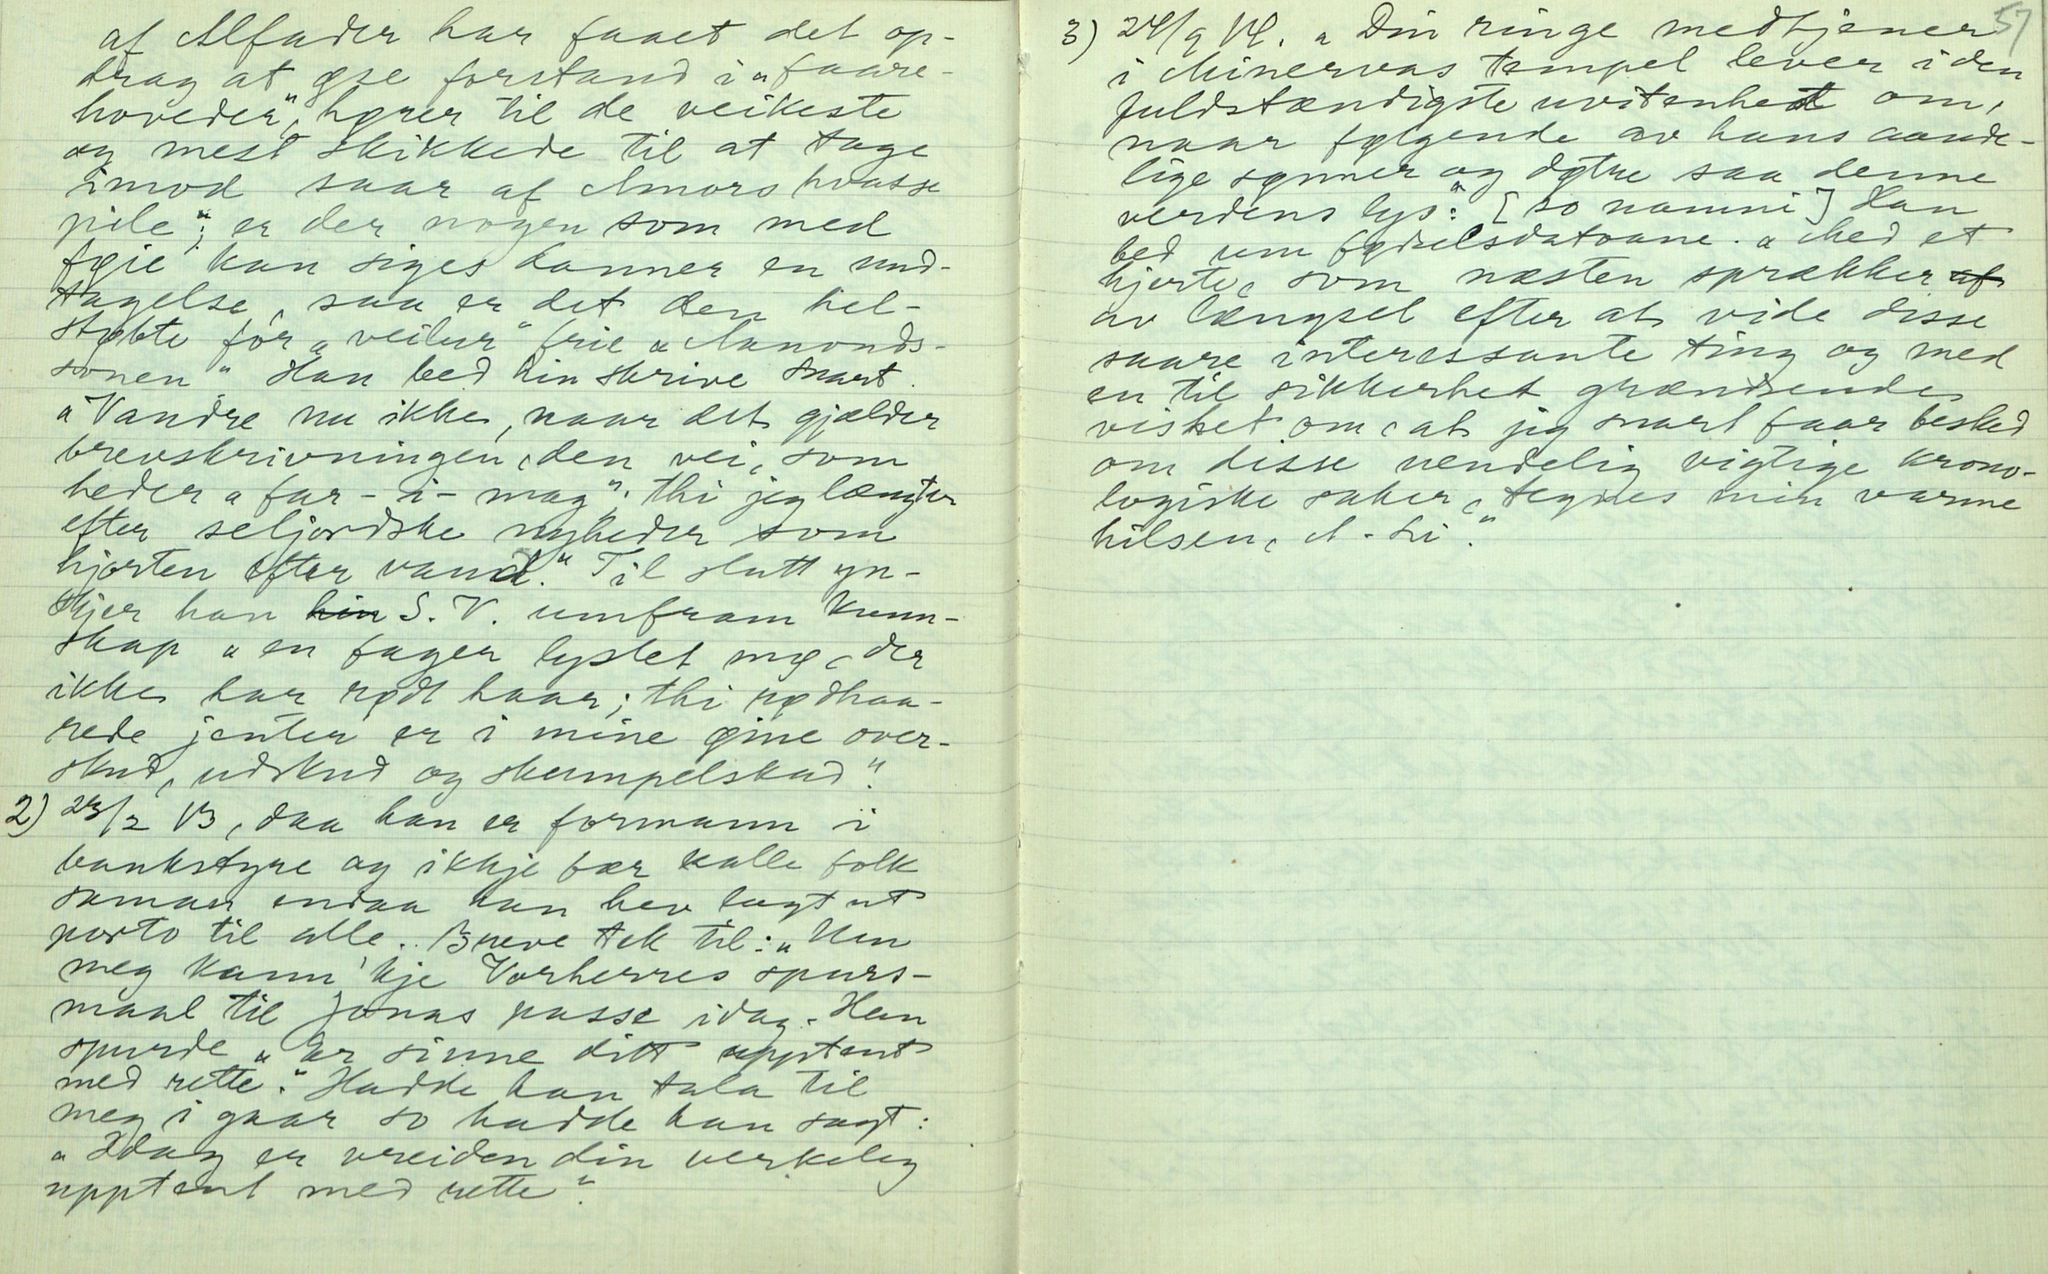 af Alfader har faaet det op-
drag at øse forstand i „faare-
hoveder“, hører til de veikeste
og mest skikkede til at tage
imod saar af Amors hvasse
pile“; er der nogen som med
føie kan siges danner en und-
tagelse, saa er det den hel-
støbte for „veilur“ frie „Aamonds-
sonen“ Han bed hin skrive snart.
„Vandre nu ikke, naar det gjælder
brevskrivningen, den vei, som
heder „far-i-mag“; thi jeg længter
efter seljordske nyheder som
hjorten efter vand.“ Til slutt yn-
skjer han hin S. V. umfram kunn-
skap „en fager lyslet mø, der
ikke har rødt haar; thi rødhaa-
rede jenter er i mine øine over-
skud, udskud og skumpelskud“.
2) 23/2 13, daa han er formann i
bankstyre og ikkje fær kalle folk
saman endaa han hev lagt ut
porto til alle. Breve tek til: „Um
meg kann 'kje Vorherres spurs-
maal til Jonas passe idag. Han
spurde „Er sinne ditt upptent
med rette“. Hadde han tala til
meg i gaar so hadde han sagt:
„Idag er vreiden din verkeleg
upptent med rette“.
57
3) 24/9 14. „Din ringe medtjener
i Minervas tempel lever i den
fuldstændigste uvitenhet om,
naar følgende av hans aande-
lige sønner og døtre saa denne
verdens lys:“ [so namni] Han
bed um fødselsdatoane. „Med et
hjerte, som næsten sprækker af
av længsel efter at vide disse
saare interessante ting og med
en til sikkerhet grændsende
vished om, at jeg snart faar besked
om disse uendelig vigtige krono-
logiske saker, tegnes min varme
hilsen, A-Li“.